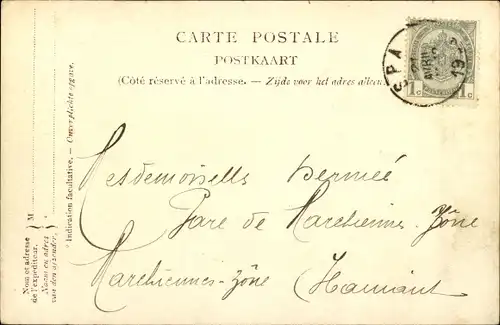 CARTE POSTALE
POSTKAART
(Côté réservé à l'adresse. — Zijde voor het adres alleen.
SPA
AVRIL
1c 1c
Mesdemoiselles Hermée
Gare de Marchienne-Zône
Marchiennes-Zône Hainaut
* Indication facultative. — Onverplichte opgave.
M
Nom et adresse
de l'expéditeur.
Naam en adres
van den afzender.